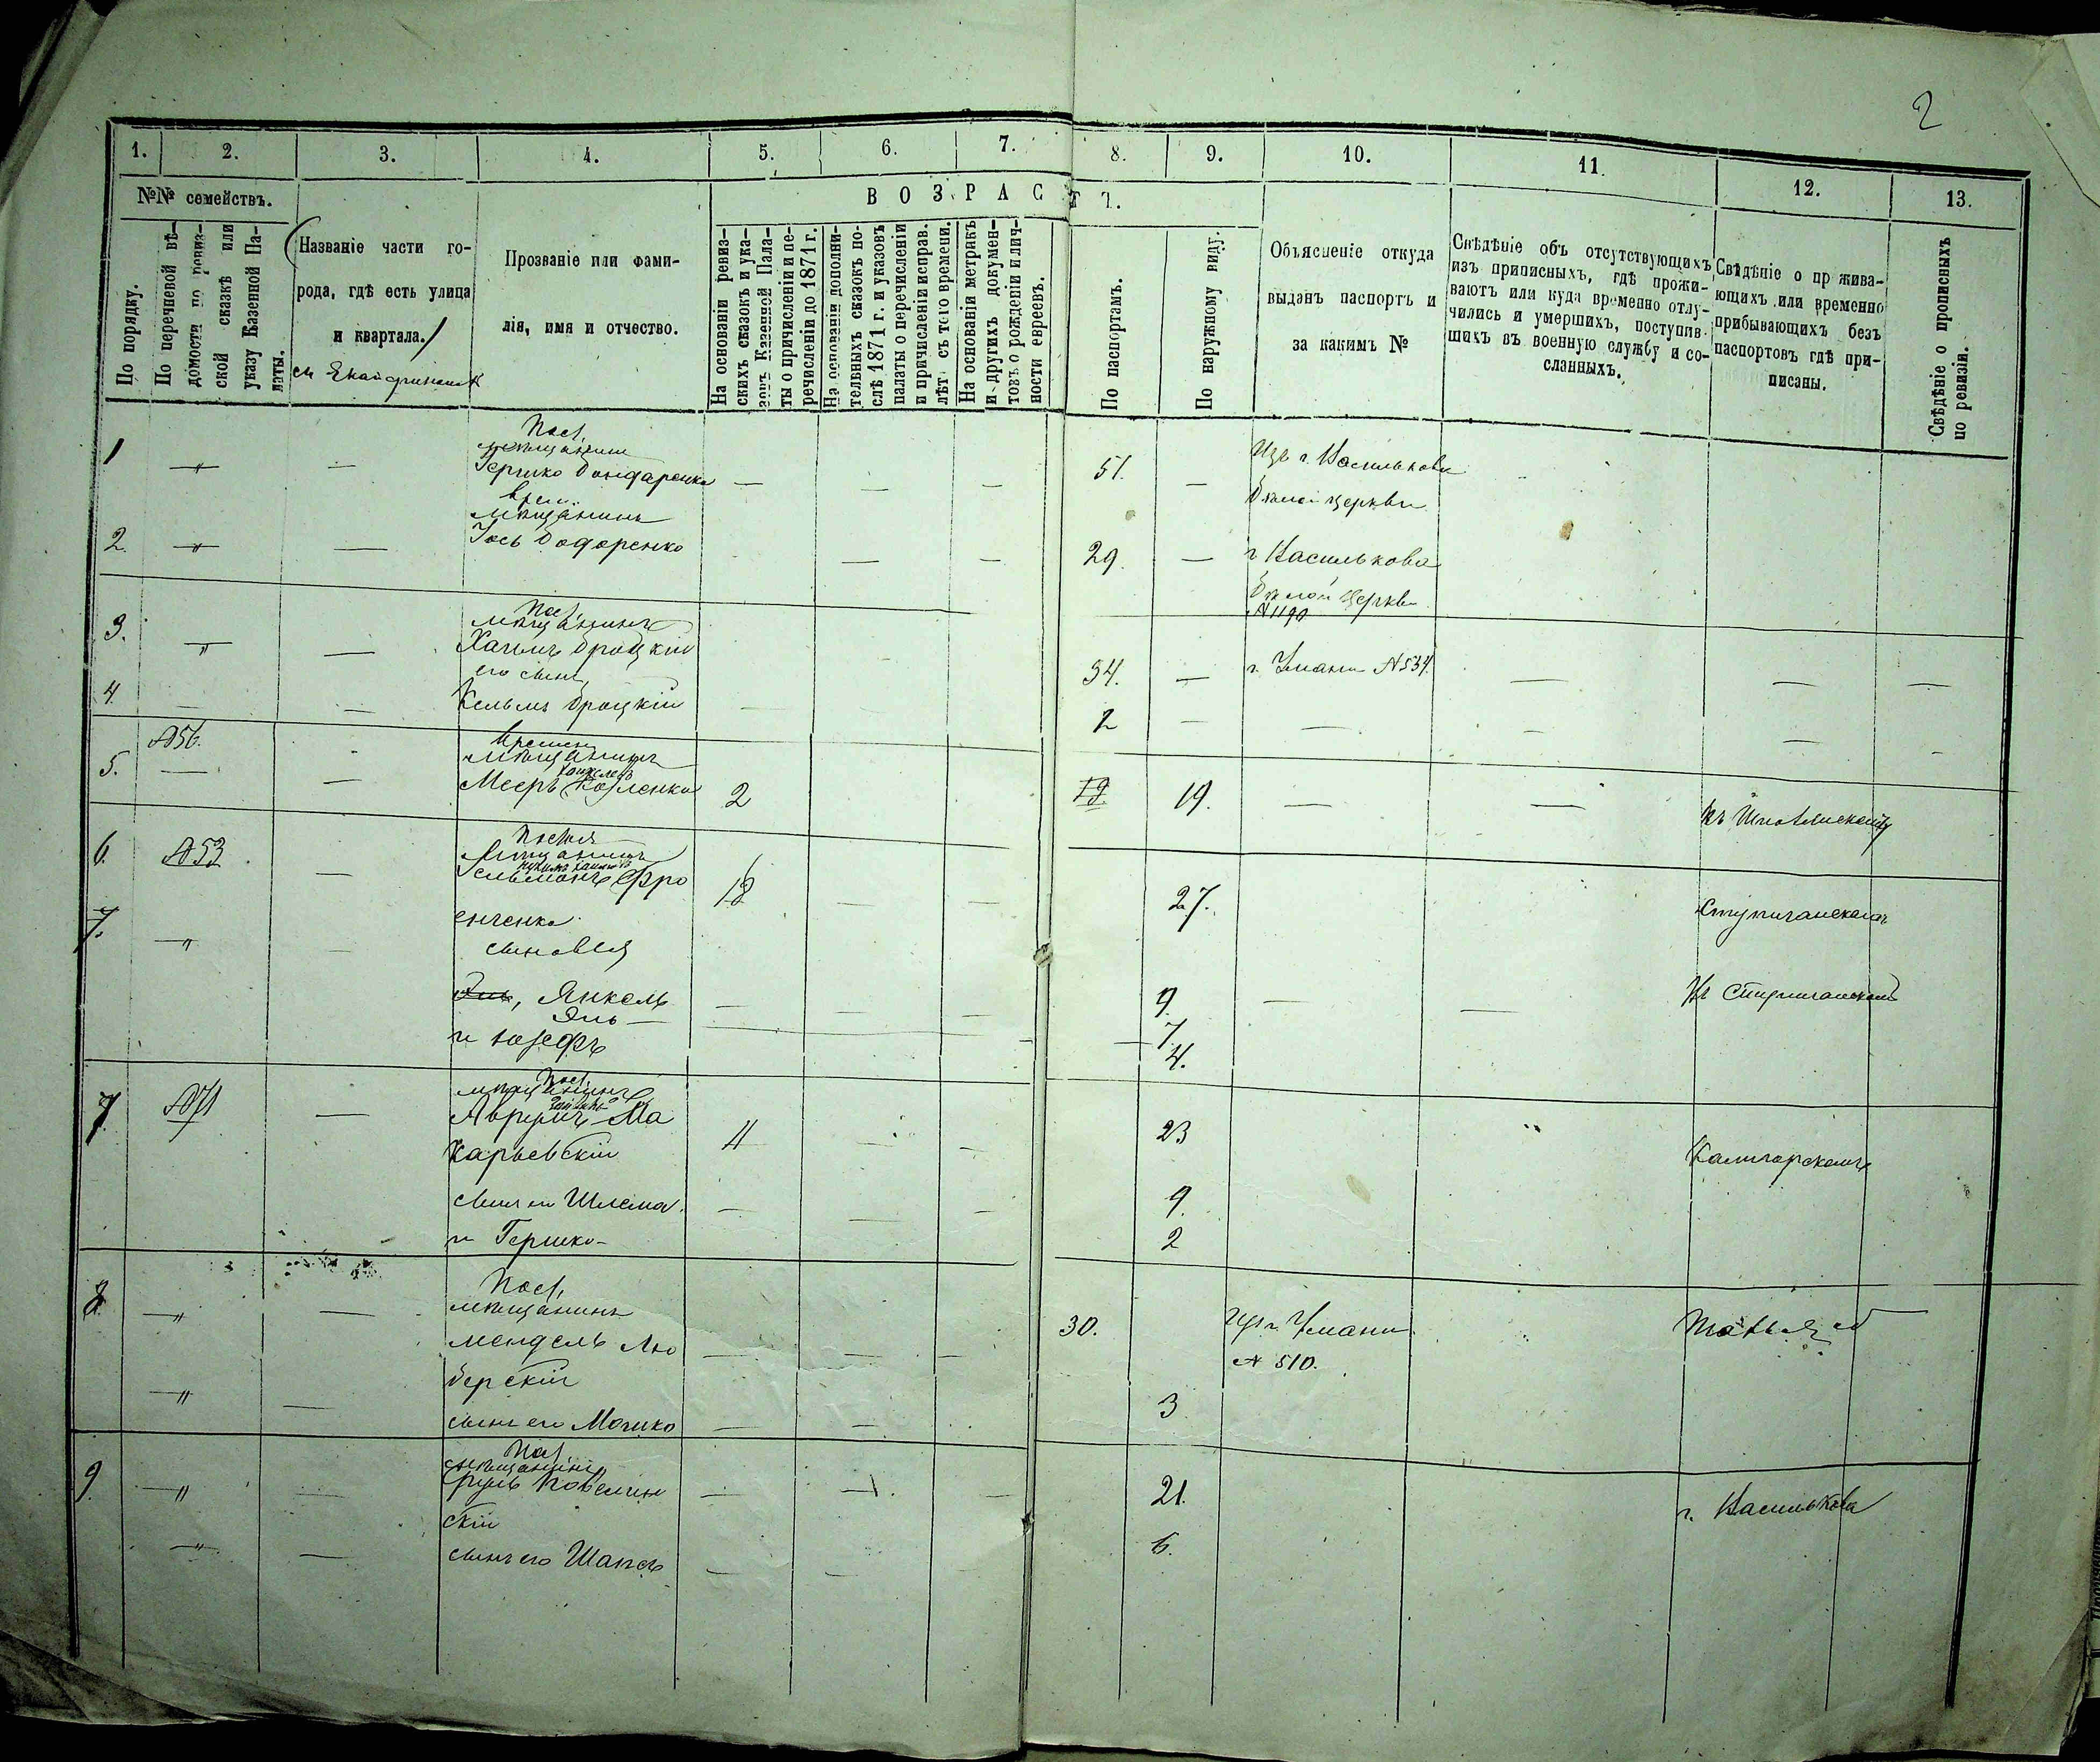 2
1. 2. 3. 4. 5. 6. 7. 8. 9. 10. 11. 12. 13.
№№ семействъ.
В О З Р А С Т Ъ.
По порядку.
По перечневой вѣ-
домости по ревиз-
ской сказкѣ или
указу Казенной Па-
латы.
(Названіе части го-
рода, гдѣ есть улица
и квартала.)
Прозваніе или фами-
лія, имя и отчество.
На основаніи ревиз-
скихъ сказокъ и ука-
зовъ Казенной Пала-
ты о причисленіи и пе-
речисленіи до 1871 г.
На основаніи дополни-
тельныхъ сказокъ по-
слѣ 1871 г. и указовъ
палаты о перечисленіи
и причисленіи исправ.
лѣт съ того времени.
На основаніи метрикъ
и другихъ докумен-
товъ о рожденіи и лич-
ности евреевъ.
По паспортамъ.
По наружному виду.
Объясненіе откуда
выданъ паспортъ и
за какимъ №
Свѣдѣніе объ отсутствующихъ
изъ приписныхъ, гдѣ прожи-
ваютъ или куда временно отлу-
чились и умершихъ, поступив-
шихъ въ военную службу и со-
сланныхъ.
Свѣдѣніе о пр жива-
ющихъ или временно
прибывающихъ безъ
паспортовъ гдѣ при-
писаны.
Свѣдѣніе о прописныхъ
по ревизіи.
Пост.
мѣщанинъ
1 Гершко Бондаренко 51. Изъ г. Василькова
Бѣлой Церкви
врем.
мѣщанинъ
2. Іось 29. г. Василькова
Бѣлой Церкви
№ 1190
Пост.
мѣщанинъ
3. Хаимъ Броцкій 34. г. Умани № 534.
его сынъ
4. Кельмъ Броцкій 2
№ 56.
Времен
мѣщанинъ
5. Мееръ Козленко 2 19 19. къ
6. № 53
мѣщанинъ
Гельманъ Фро 18 27.
7. енченко
сыновья
Янкель 9. къ
Эль 7.
и Іозефъ 4.
Пост.
мѣщанинъ
7 № 71 Аврумъ Ма 11 23
каръевскій
сыни Шлема 9.
и Гершко 2
Пост.
8. мѣщанинъ
Мендель Лю 30. изъ г. Умани
берскій № 510.
сынъ его Мошко 3
Пост.
мѣщанинъ
9. Сруль 21. г. Василькова
скій
сынъ его Шапсъ 6.